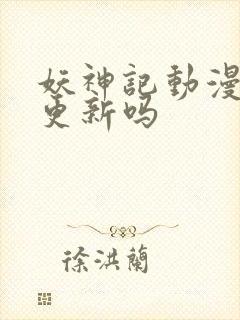 妖神記動漫
更新吗
徐洪蘭